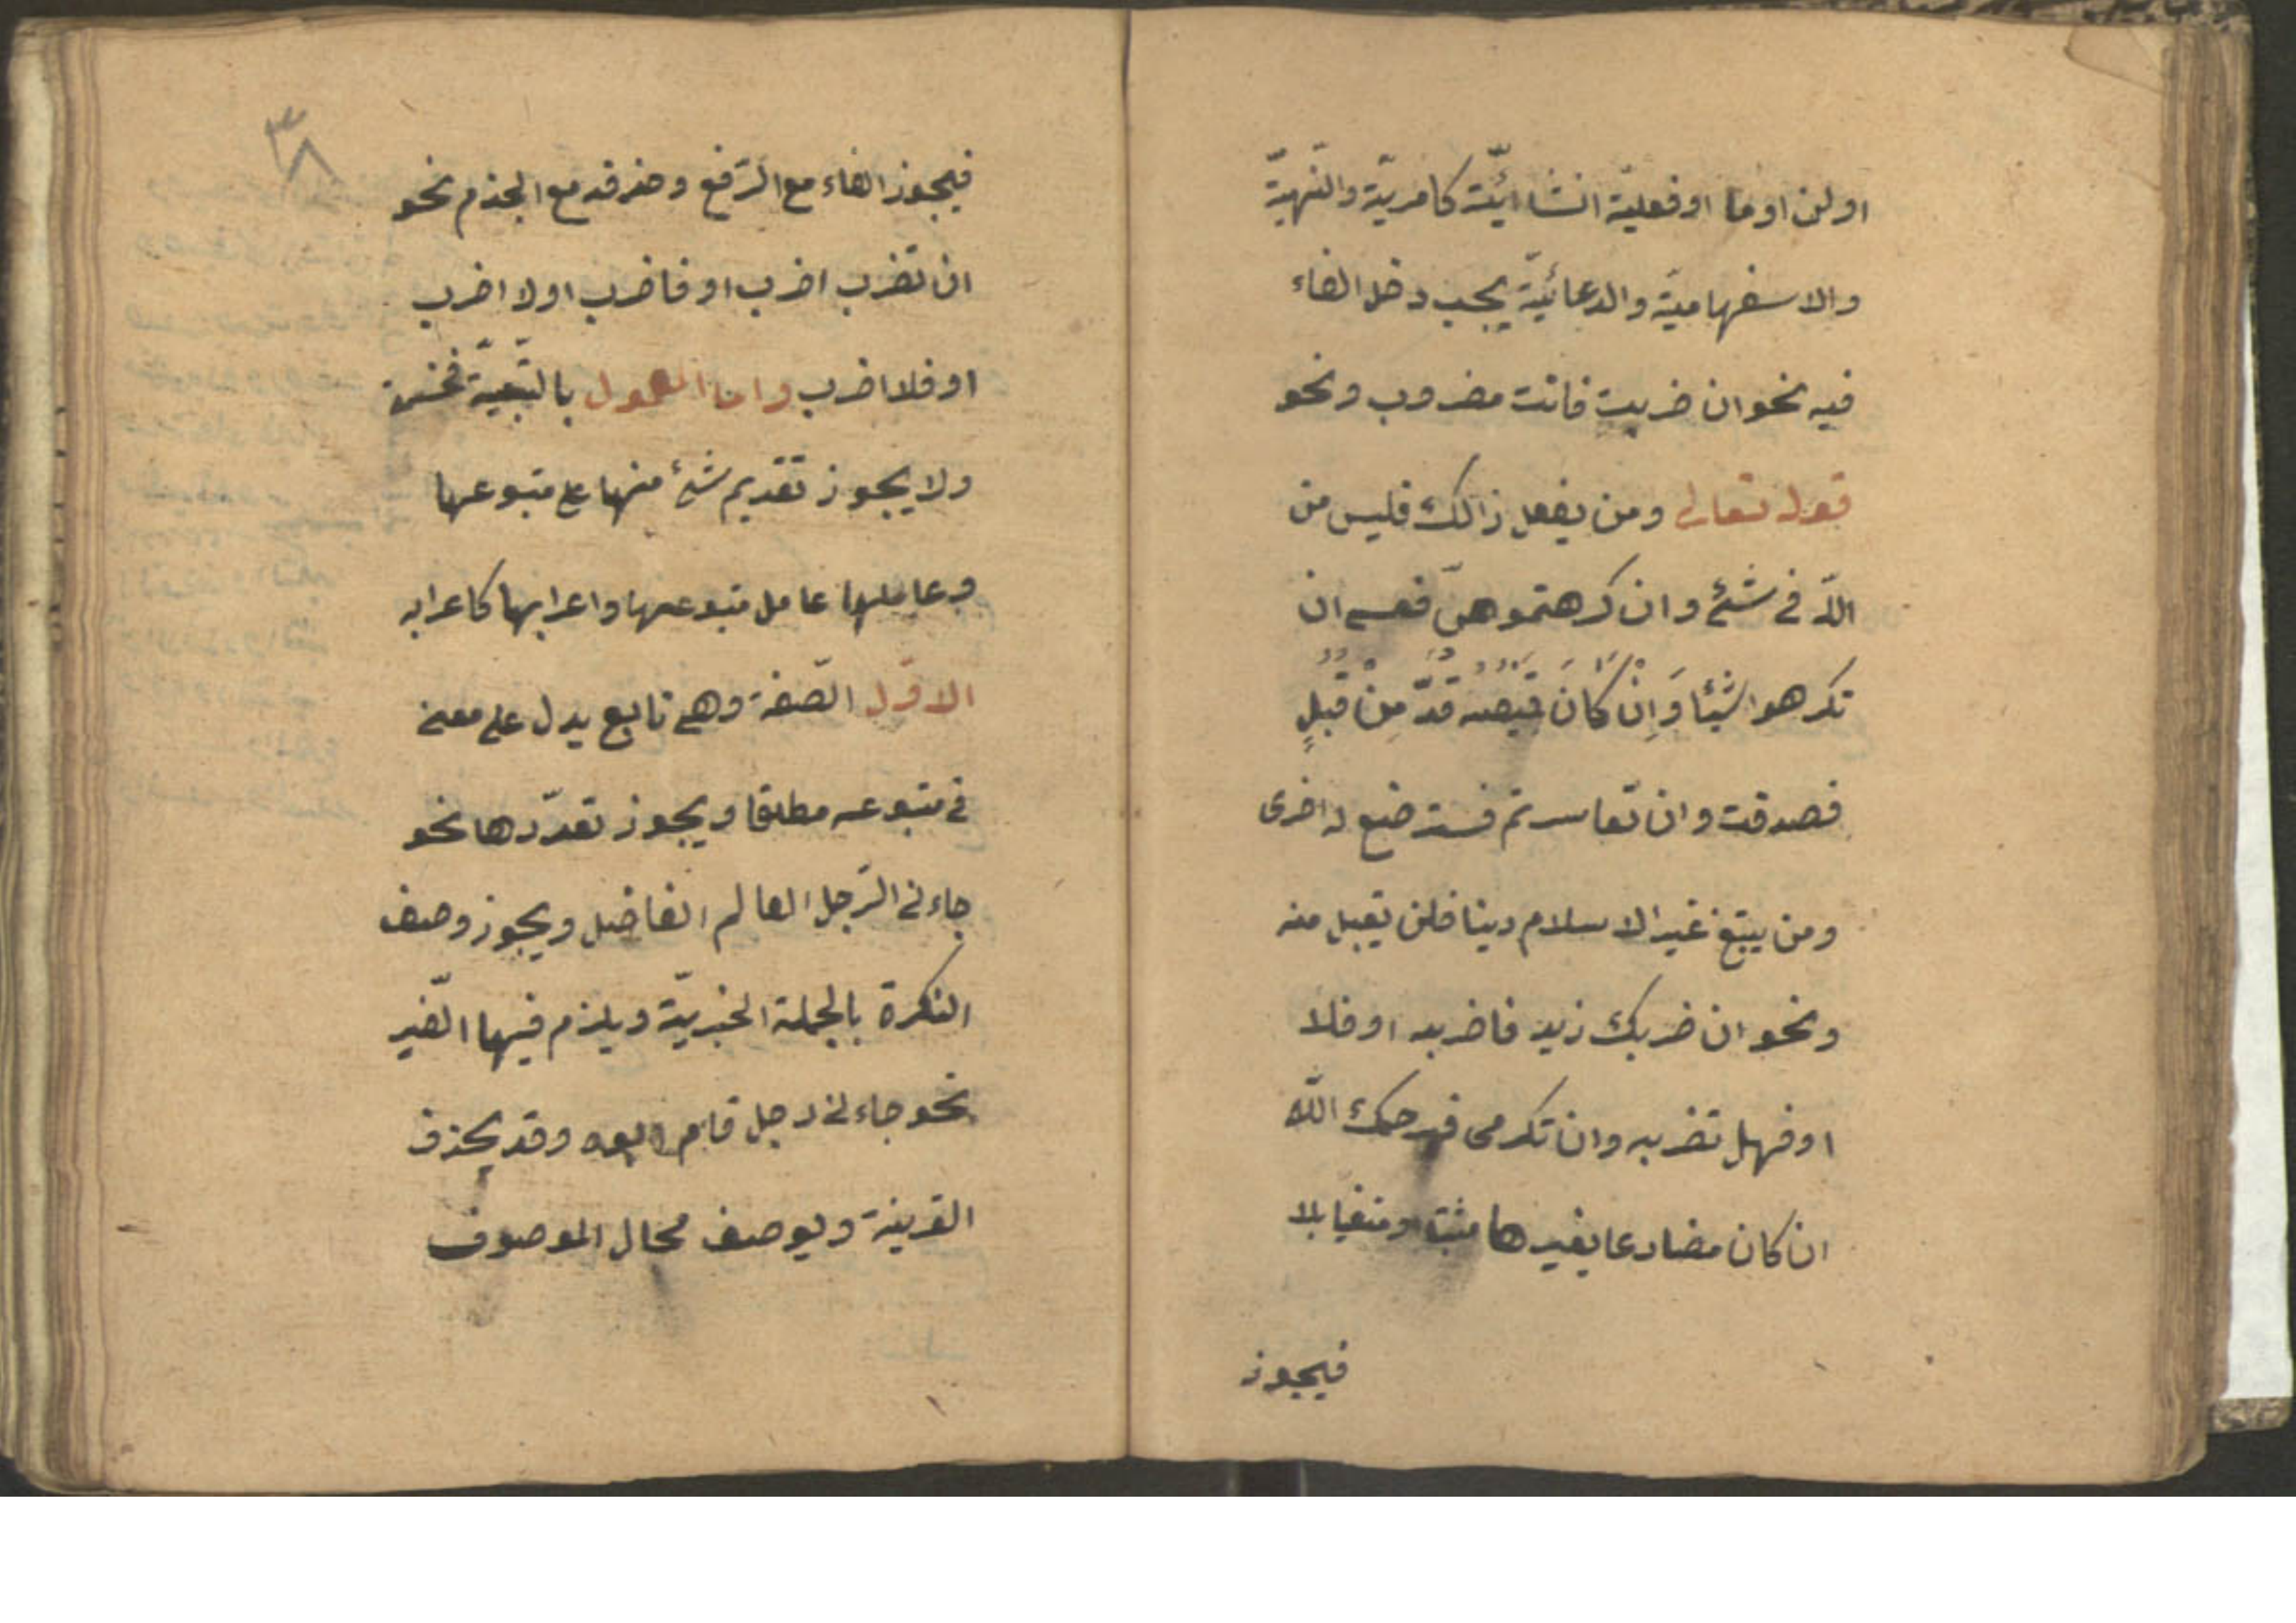 اولن او ما او فعليّة انشائيّة كامريّة والنّهيّة
والاسفهاميّة والدعائيّة يجب دخل الفاء
فيه نحو ان ضربت فانت مضروب ونحو
قوله تعالى ومن يفعل ذالك فليس من
اللّه فى شئ وان كرهتموهنّ فعسى ان
تكرهوا شيئا وَاِنْ كَانَ قَمِيصُهُ قُدَّ مِنْ قُبُلٍ
فصدقت وان تعاسرتم فسترضع له اخرى
ومن يبتغ غير الاسلام دينا فلن يقبل منه
ونحو ان ضربك زيد فاضربه او فلا
او فهل تضربه وان تكرمى فيرحمك اللّه
ان كان مضارعا بغيرها مثبتا او منفيا بلا
فيجوز
٣٨
فيجوز الفاء مع الرّفع وحذفه مع الجزم نحو
ان تضرب اضرب او فاضرب او لا اضرب
او فلا اضرب واما المعمول بالتّبعيّة فخمسة
ولا يجوز تقديم شئ منها على متبوعها
وعاملها عامل متبوعها واعرابها كاعرابه
الاوّل الصّفة وهى تابع يدل على معنى
فى متبوعه مطلقا ويجوز تعدّدها نحو
جاءنى الرّجل العالم الفاضل ويجوز وصف
النكرة بالجملة الخبريّة ويلزم فيها الضّمير
نحو جاءنى رجل قام ابوه وقد يحذف
القرينة ويوصف بحال الموصوف